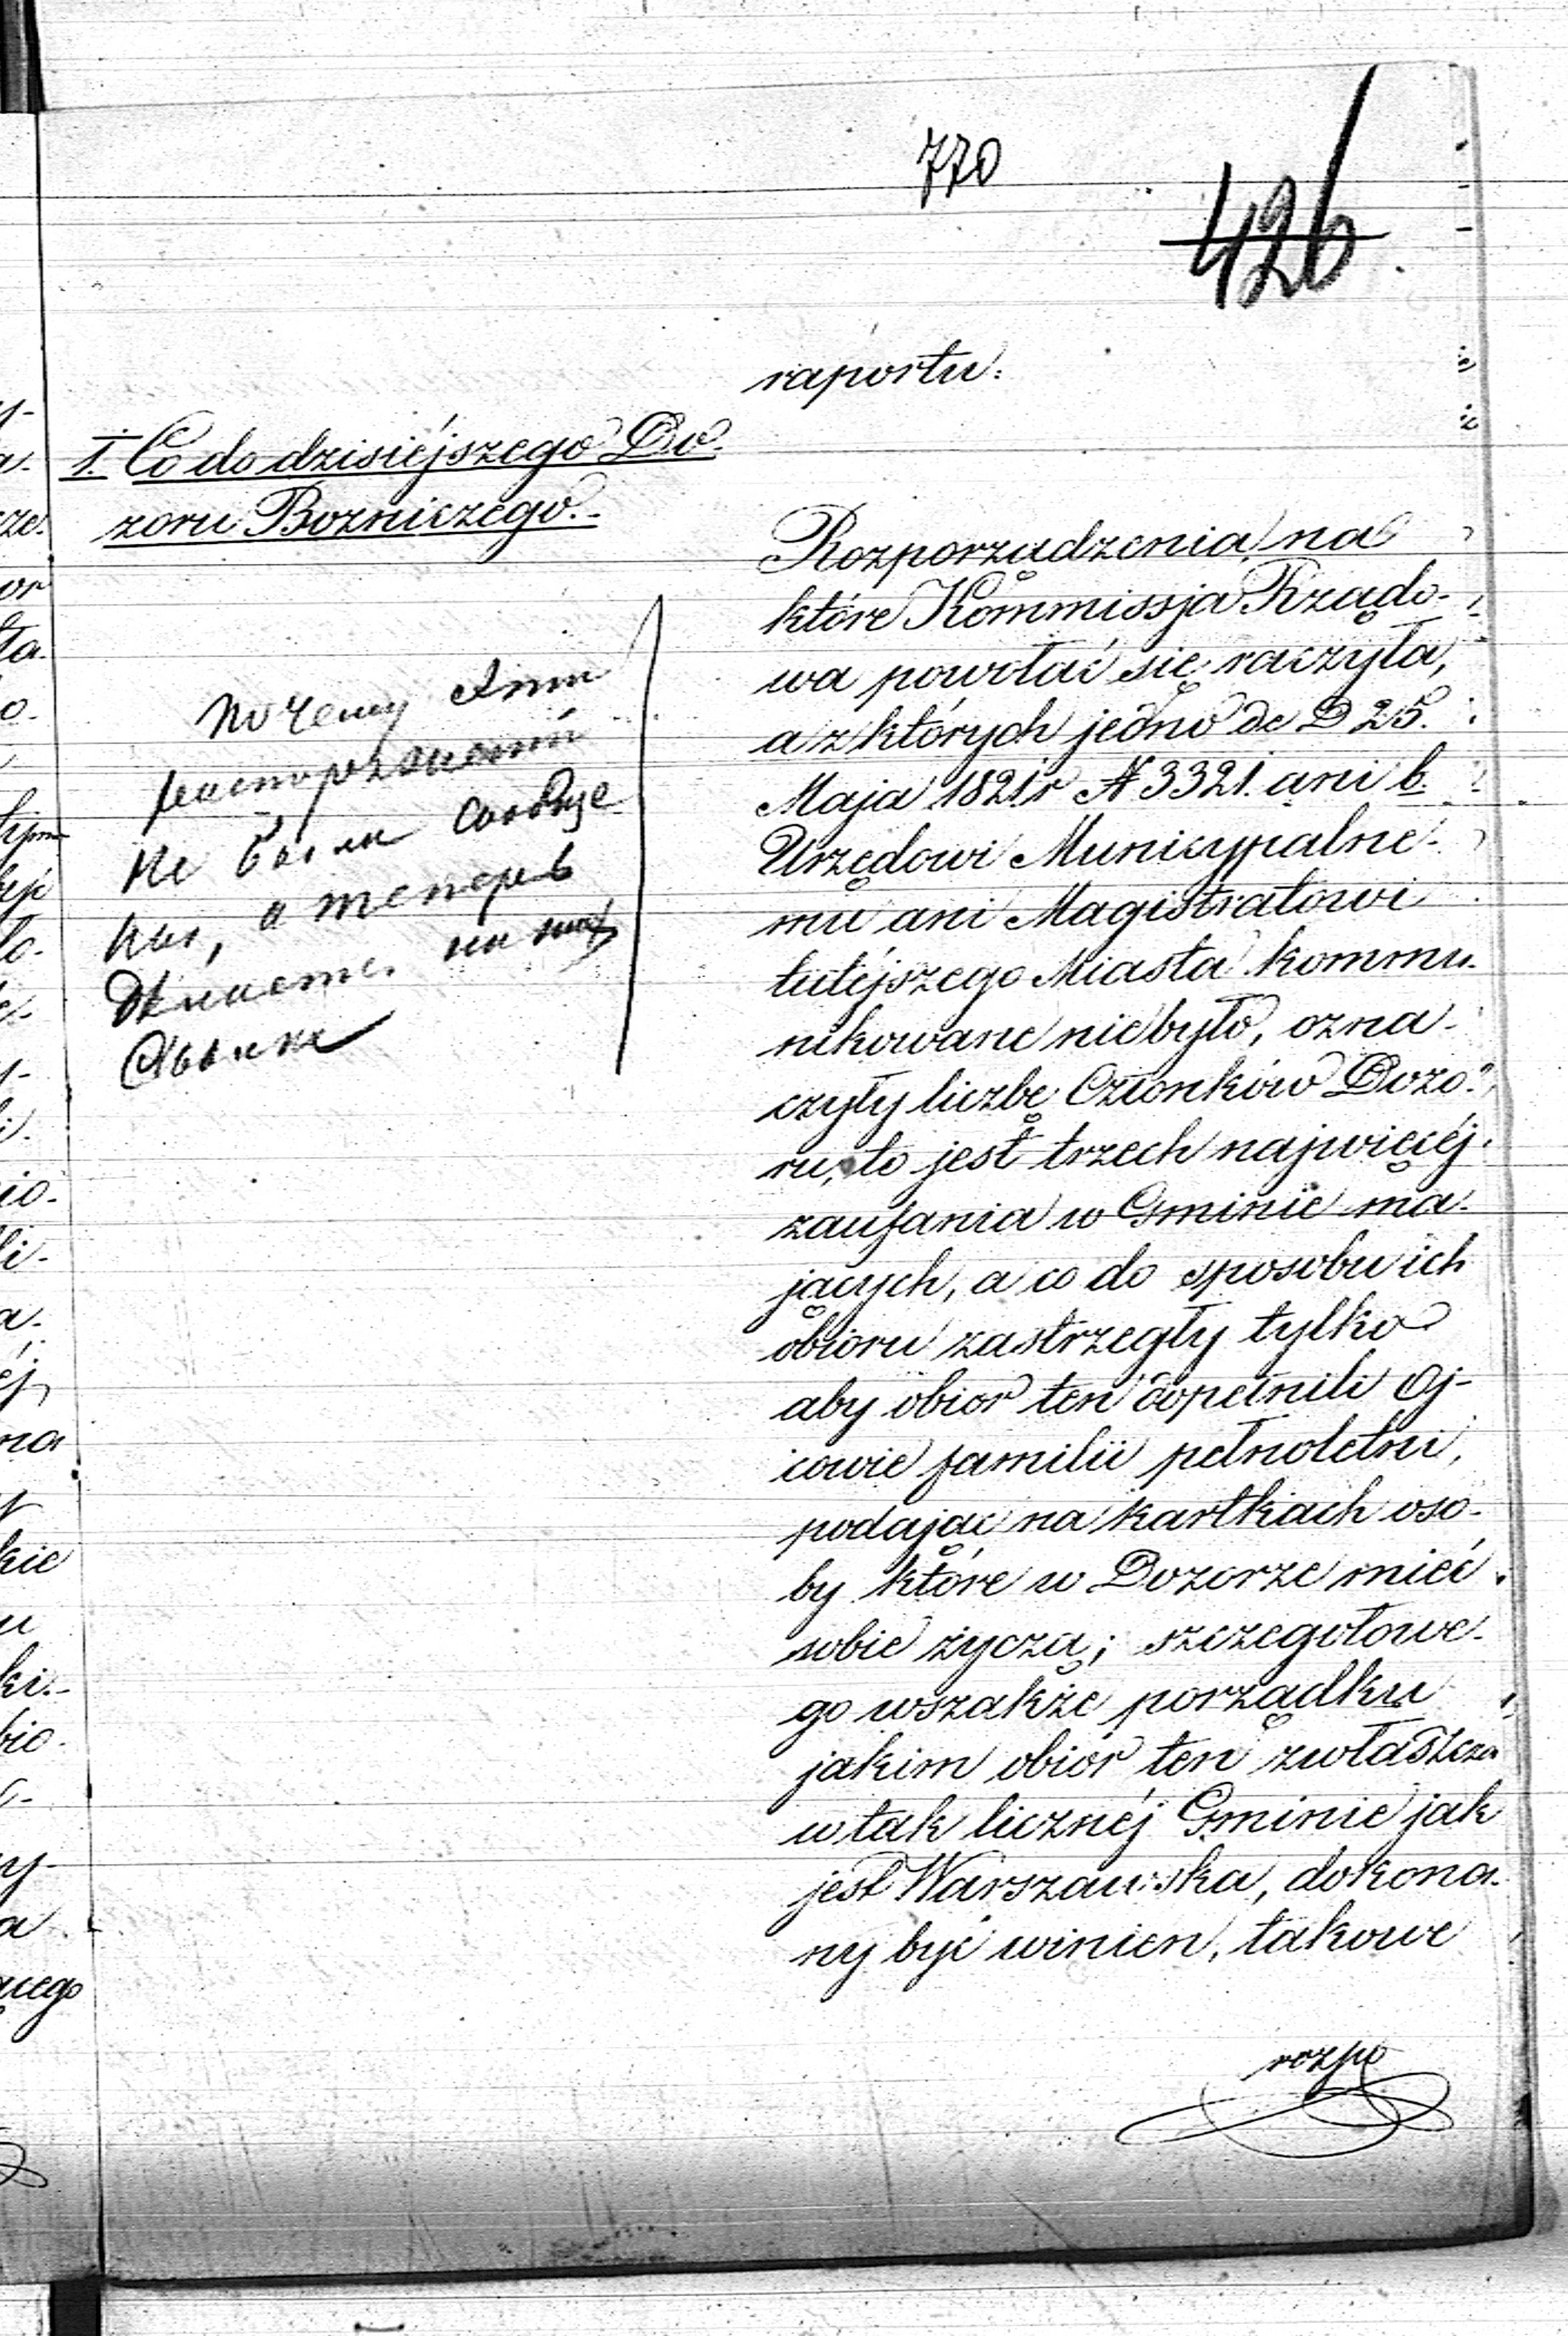 770
426
raportu.
1. Co do dzisiéjszego Do-
zoru Bozniczego.-
почему этии
распоряжении
не были сообще
ны, а теперь
делаете. на них
Ссылки
Rozporządzenia, na
które Kommissja Rządo-
wa powołać się raczyła,
a z których jedno de D 25.
Maja 1821 r N 3321. ani b.
Urzędowi Municypalne-
mu ani Magistratowi
tutéjszego Miasta kommu-
nikowane niebyło, ozna-
czyły liczbę Członków Dozo-
ru, to jest trzech najwięcéj
zaufania w Gminie ma-
jących, a co do sposobu ich
obioru zastrzegły tylko
aby obior ten dopełnili Oj-
cowie familii pełnoletni,
podając na kartkach oso-
by które w Dozorze mieć
sobie życzą; szczegołowe-
go wszakże porządku
jakim obiór ten zwłaszcza
w tak licznéj Gminie jak
jest Warszawska, dokona-
ny być winien, takowe
rozpo